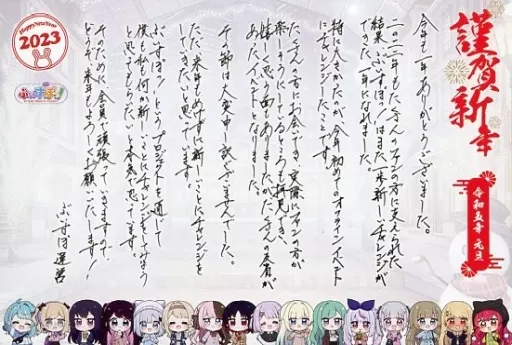 謹賀新年
令和五年 元旦
今年も一年ありがとうございました。
二〇二二年もたくさんのファンの方に支えられた
結果、ぶいすぽっ!はまた一歩新しいチャレンジが
できた一年になれました。
特に大きかったのが、今年初めてのオフラインイベント
にチャレンジしたことです。
たくさんの方にお会いでき、実際にファンの方が
楽しそうにしているところも拝見でき、
嬉しく思う面もありましたが、たくさんの
あったイベントとなりました。
その節は大変申し訳ございませんでした。
ただ、来年もめげずに新しいことにチャレンジを
していきたいと思っています。
ぶいすぽっ!というプロジェクトを通じて
僕も私も何か新しいことにチャレンジをしてみよう
と思ってもらいたいと本気で思ってます。
そのために全員で頑張ってきますので、
どうか、来年もよろしくお願いいたします!!
ぶいすぽ運営
Happy New Year
2023
ぶいすぽっ!